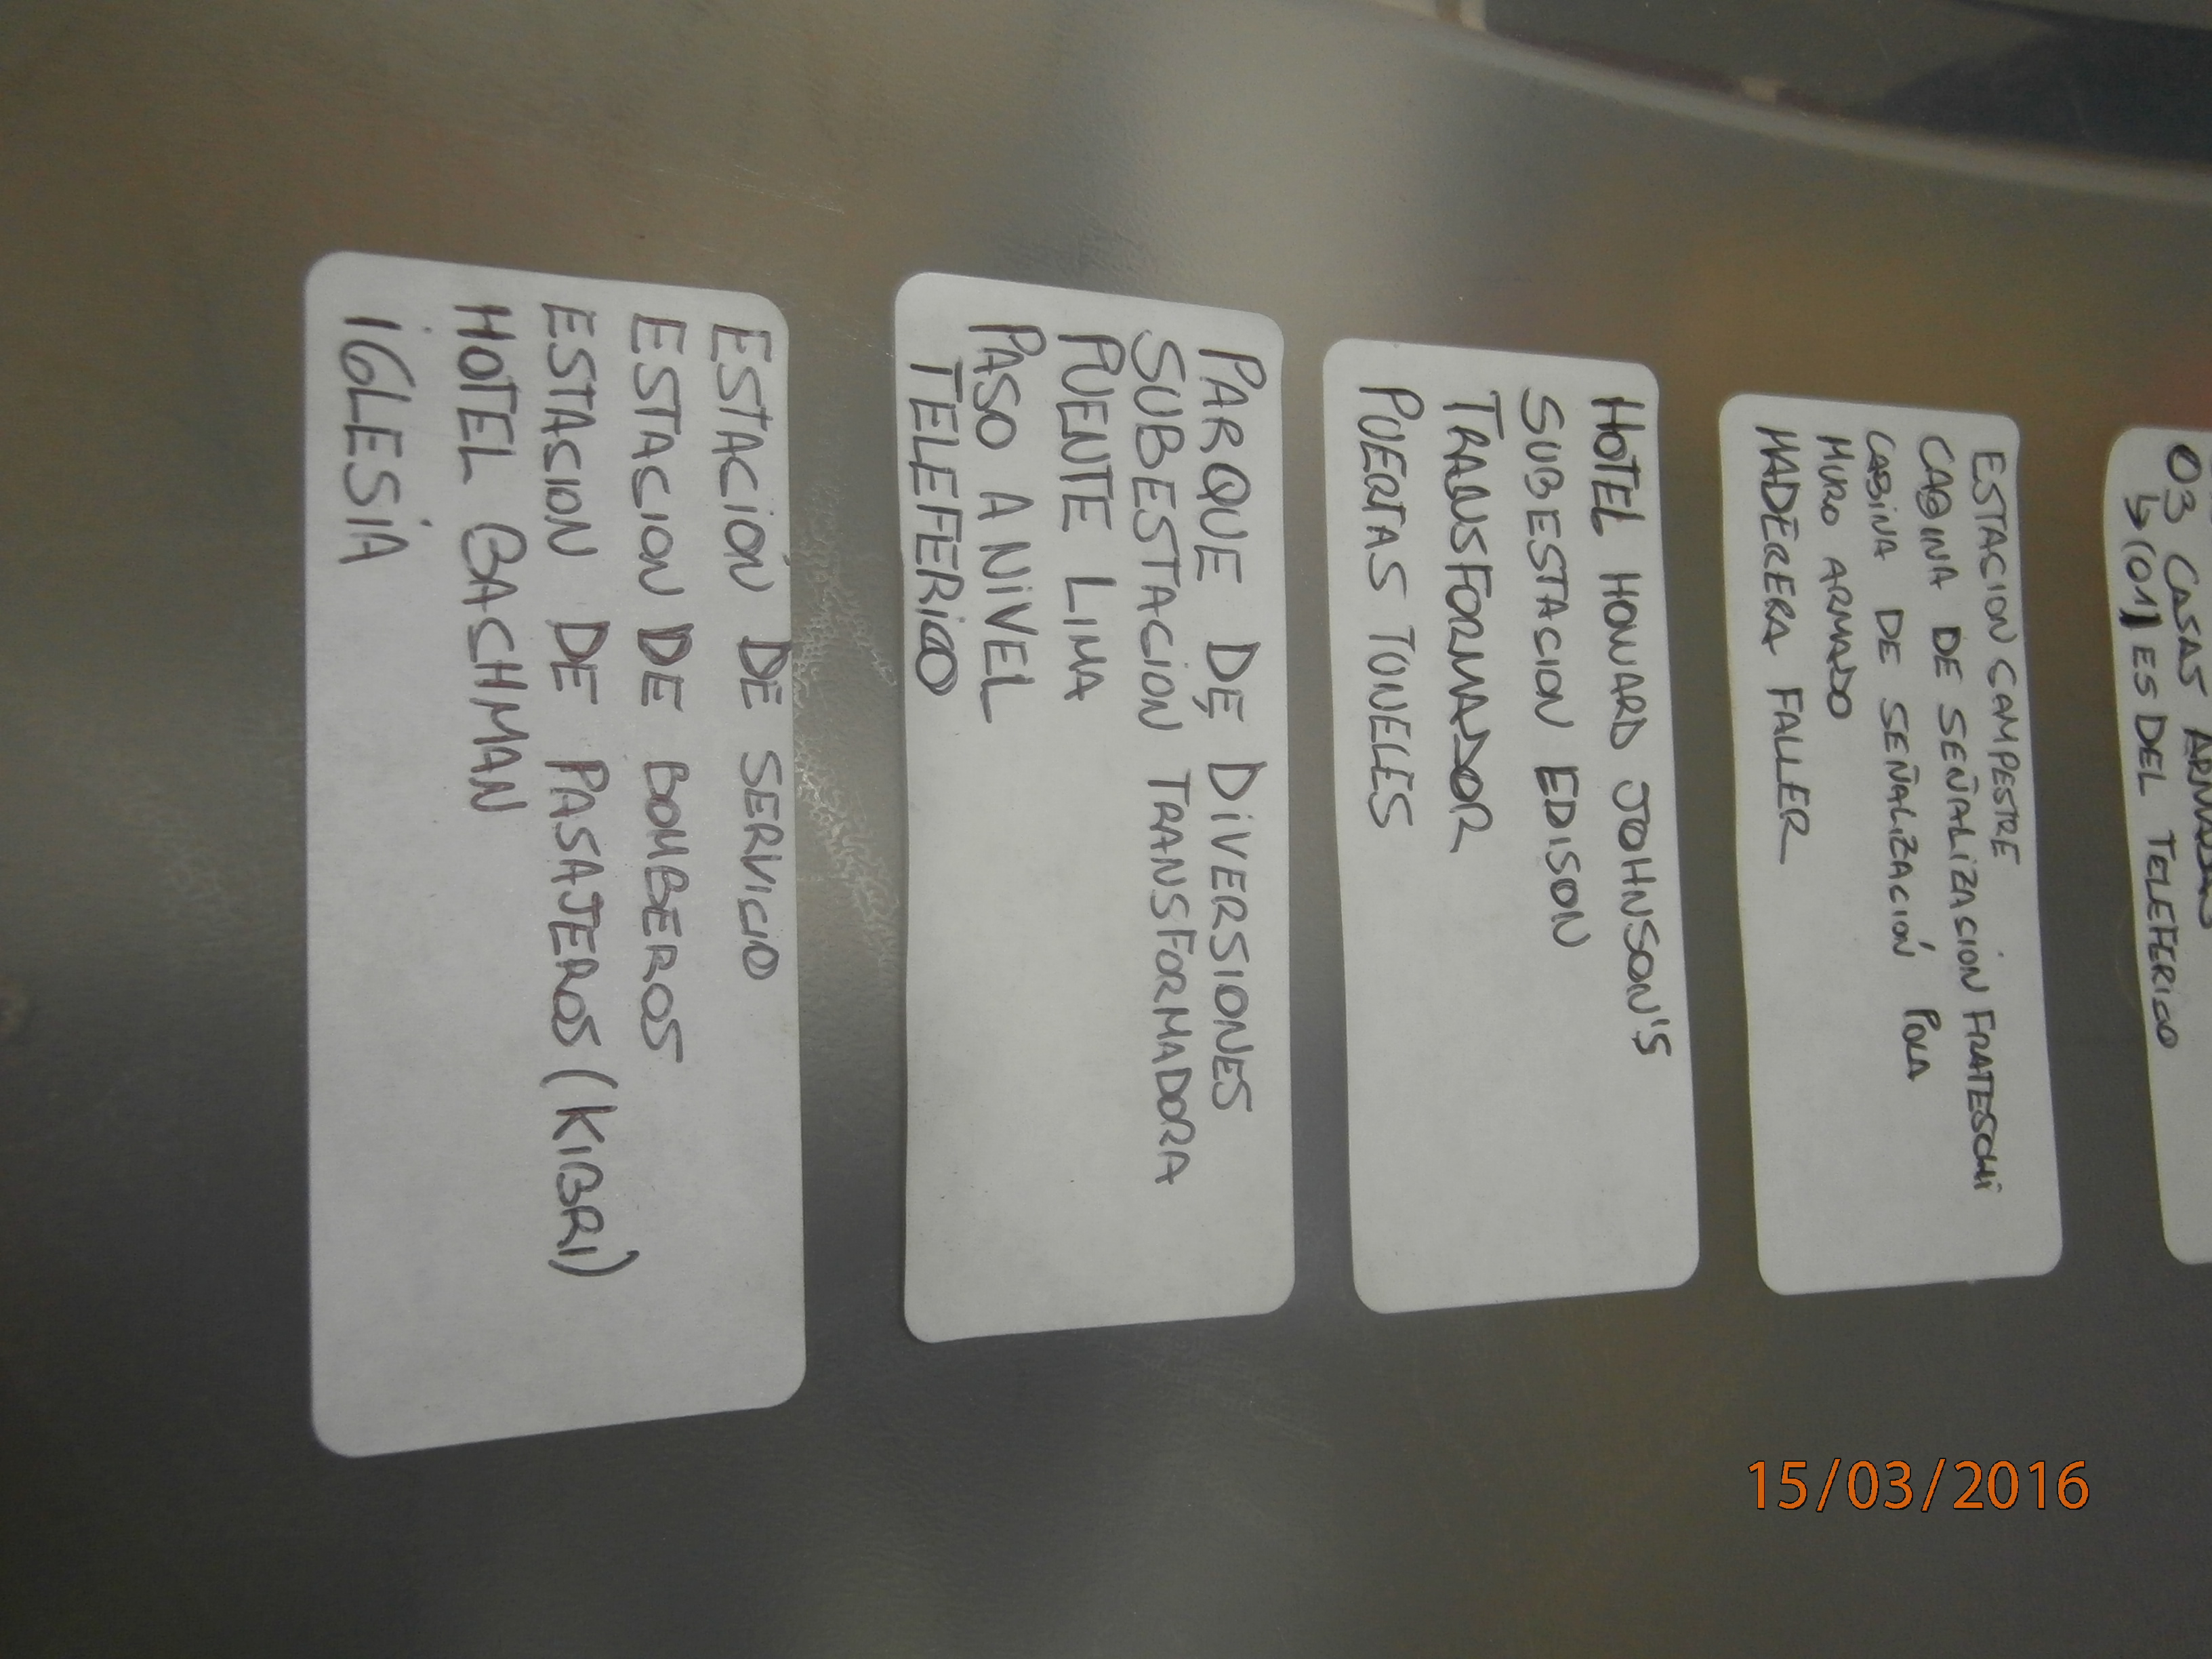 03 CASAS ARMADAS
↳ (01) ES DEL TELEFERICO
ESTACION CAMPESTRE
CABINA DE SEÑALIZACION FRATESCHI
CABINA DE SEÑALIZACIÓN POLA
MURO ARMADO
MADERERA FALLER
HOTEL HOWARD JOHNSON'S
SUBESTACION EDISON
TRANSFORMADOR
PUERTAS TUNELES
PARQUE DE DIVERSIONES
SUBESTACIÓN TRANSFORMADORA
PUENTE LIMA
PASO A NIVEL
TELEFERICO
ESTACIÓN DE SERVICIO
ESTACION DE BOMBEROS
ESTACION DE PASAJEROS (KIBRI)
HOTEL BACHMAN
IGLESIA
15/03/2016